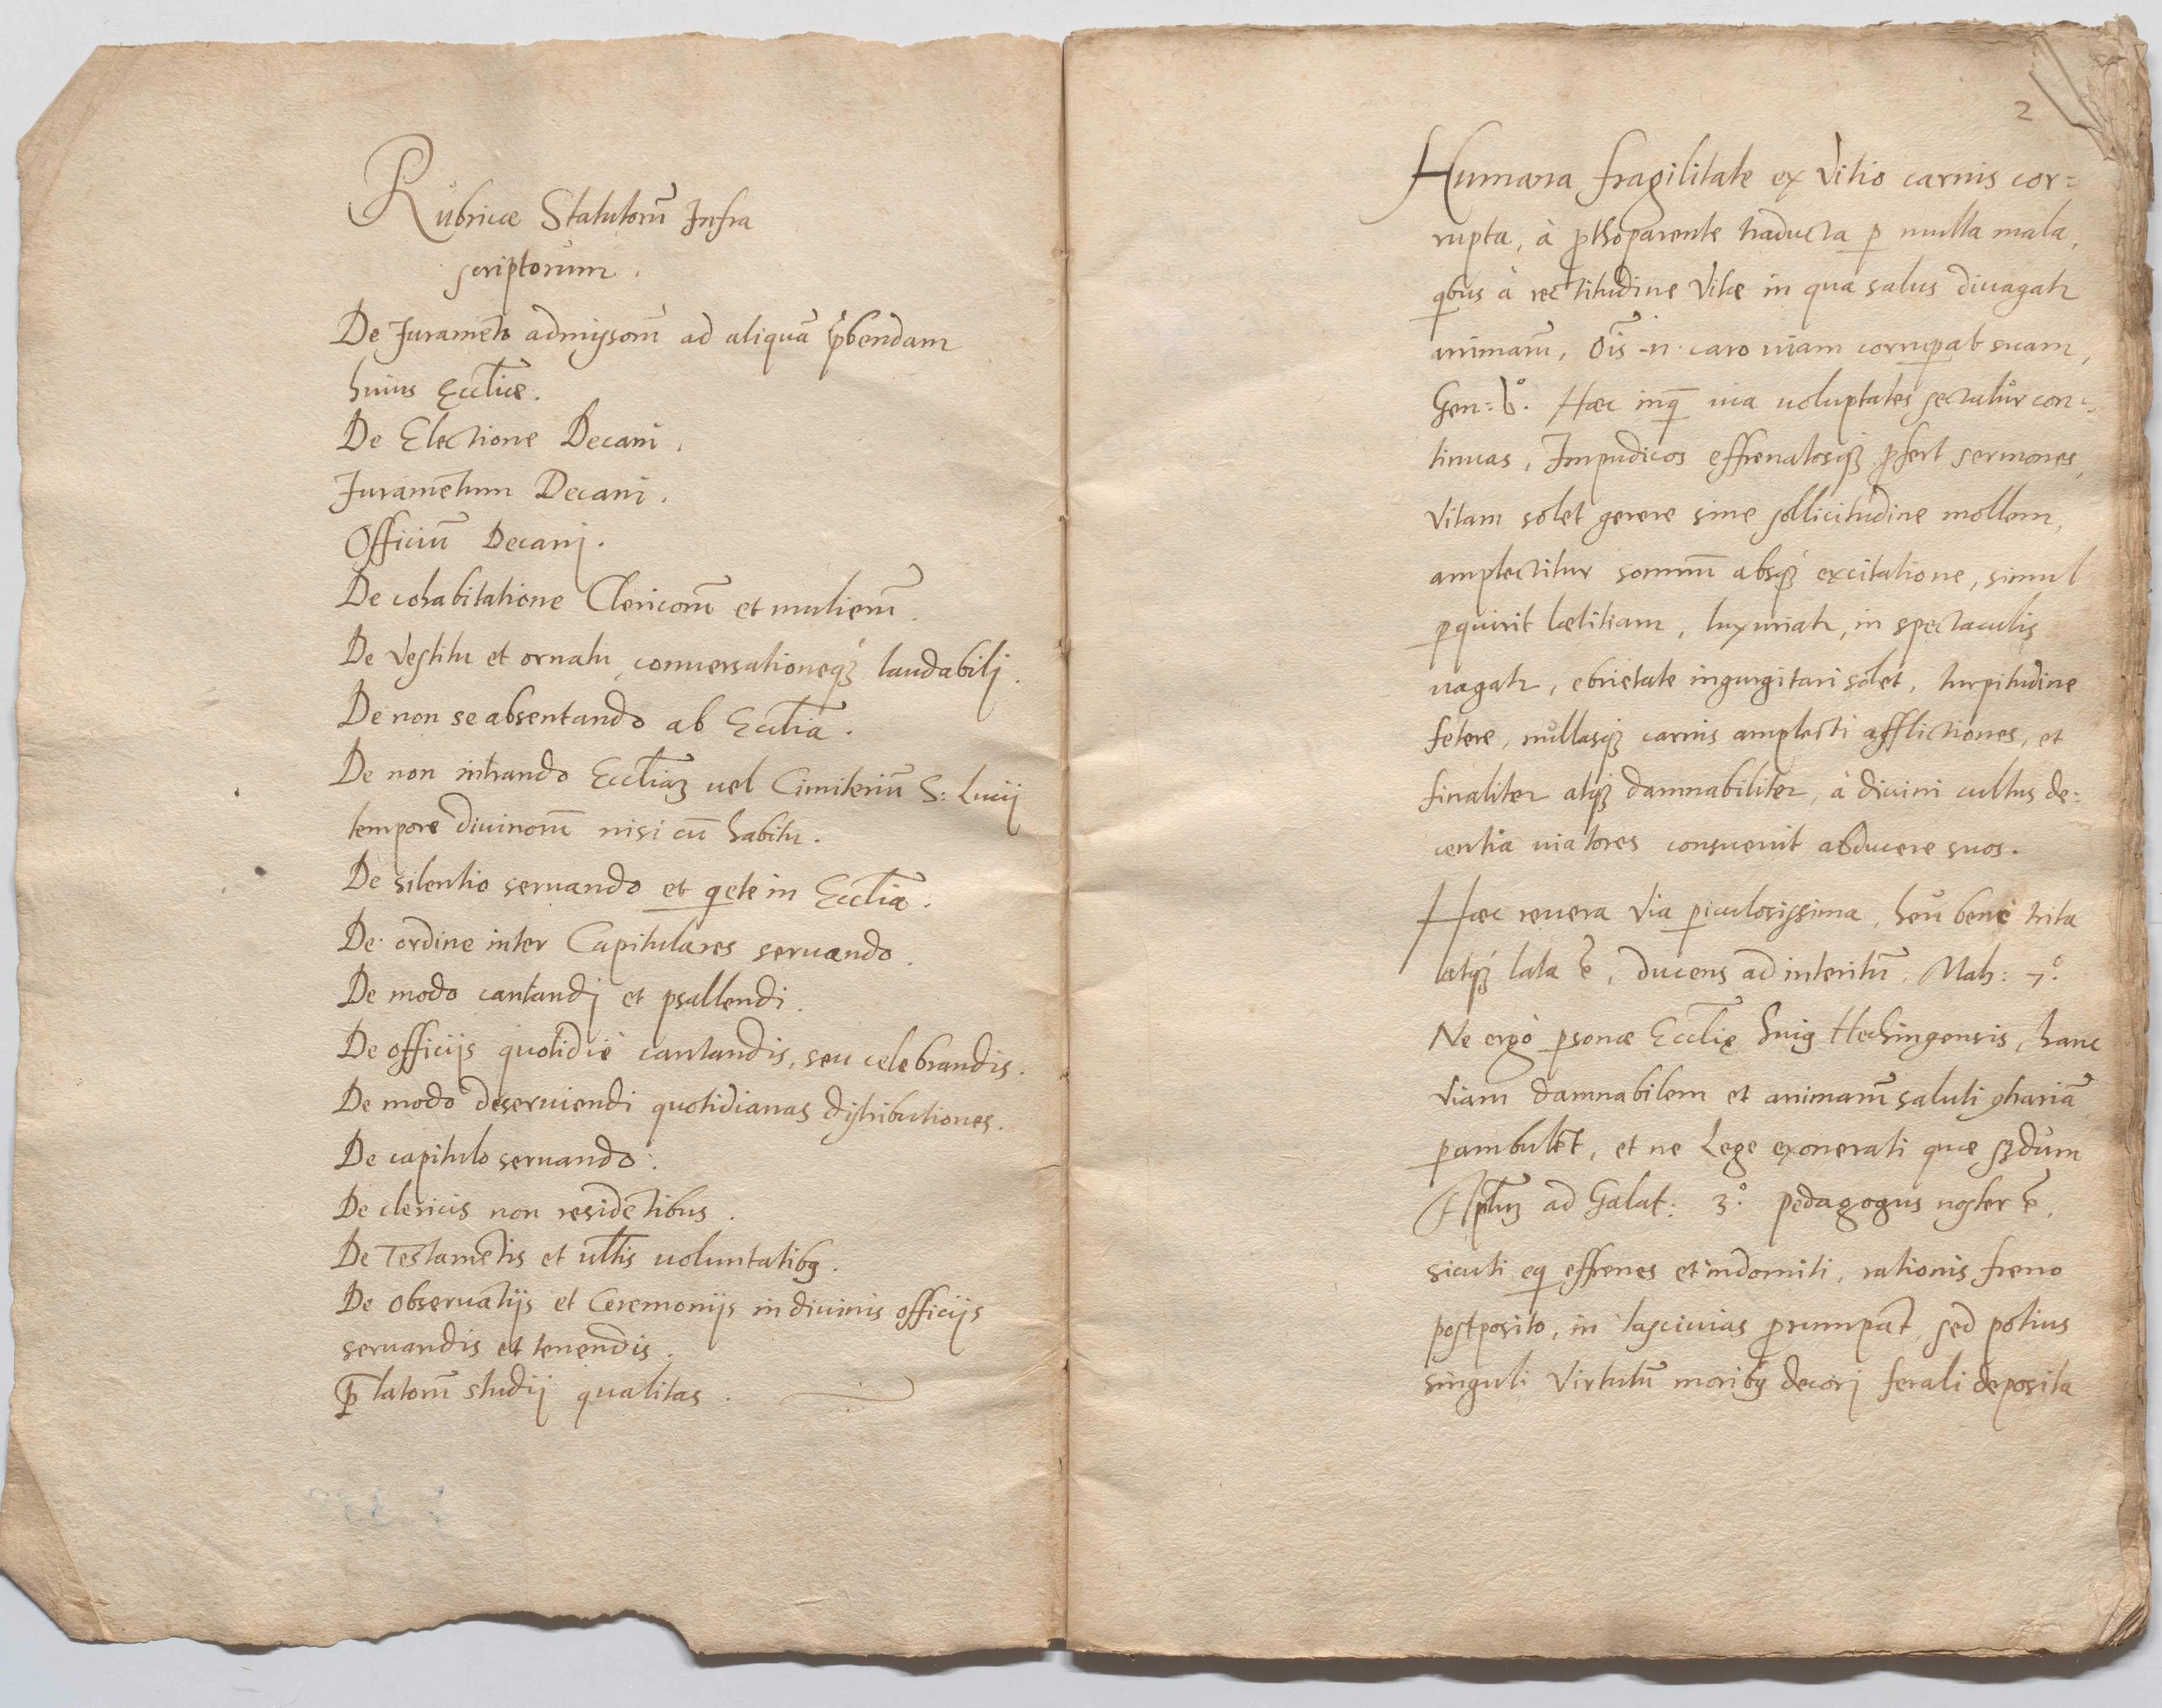 Rubricæ Statutorũ Infra
scriptorum.
De Juramẽto admissorũ ad aliquã p̃bendam
huius Eccl̃iæ.
De Electione Decani.
Juramẽtum Decani.
Officiũ Decanj.
De cohabitatione Clericorũ et mulierũ.
De vestitu et ornatu, conuersationeq₃ laudabilj.
De non se absentando ab Eccl̃ia.
De non intrando Eccl̃ia₃ uel Cimiteriũ S: Lucij
tempore diuinorũ nisi cũ habitu.
De silentio seruando et q̃ete in Eccl̃ia.
De ordine inter Capitulares seruando.
De modo cantandj et psallendi.
De officijs quotidiè cantandis, seu celebrandis.
De modo deseruiendi quotidianas distributiones.
De capitulo seruando.
De clericis non residẽtibus.
De Testamẽtis et ult̃is uoluntatibꝯ.
De obseruãtijs et Ceremonijs in diuinis officijs
seruandis et tenendis.
P̃latorũ studij qualitas.
2
Humana fragilitate ex vitio carnis cor=
rupta, à ꝓthoparente traducta ꝑ multa mala,
qbus à rectitudine vitæ in qua salus diuagatr
animarũ, Oĩs .n. caro uiam corruꝑat suam,
Gen: 6.° Hæc inq̃ uia uoluptates sectatur con=
tinuas, Impudicos effrenatosq₃ ꝓfert sermones,
vitam solet gerere sine sollicitudine mollem,
amplectitur somnũ absq₃ excitatione, simul
ꝑquirit lætitiam, luxuriatr, in spectaculis
uagatr, ebrietate ingurgitari solet, turpitudine
fetere, nullasq₃ carnis amplecti afflictiones, et
finaliter atq₃ damnabiliter, à diuini cultus de=
centia uiatores consueuit abducere suos.
Hæc reuera via ꝑiculosissima, heu benè trita
atq₃ lata ẽ, ducens ad interitũ. Math: 7.°
Ne ergò ꝑsonæ Eccl̃ię huiꝯ Hechingensis, hanc
viam damnabilem et animarũ saluti ꝯtrariã
ꝑambulẽt, et ne Lege exonerati quæ s₃dum
Apl̃u₃ ad Galat: 3.° pedagogus noster ẽ,
sicuti eq̃ effrenes et indomiti, rationis freno
postposito, in lasciuias ꝓrumpãt, sed potius
singuli virtutũ moribꝯ decorj ferali deposita